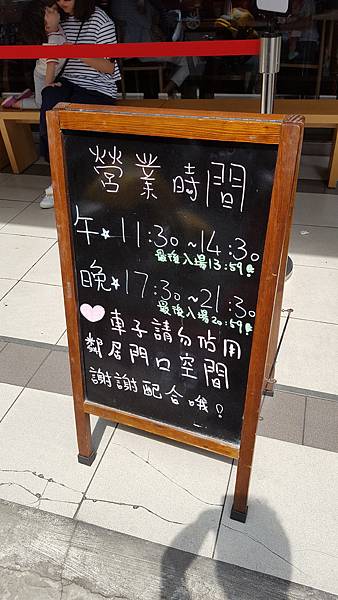 營業時間
午★11:30~14:30
最後入場13:59止
晚★17:30~21:30
最後入場20:59止
車子請勿佔用
鄰居門口空間
謝謝配合哦!